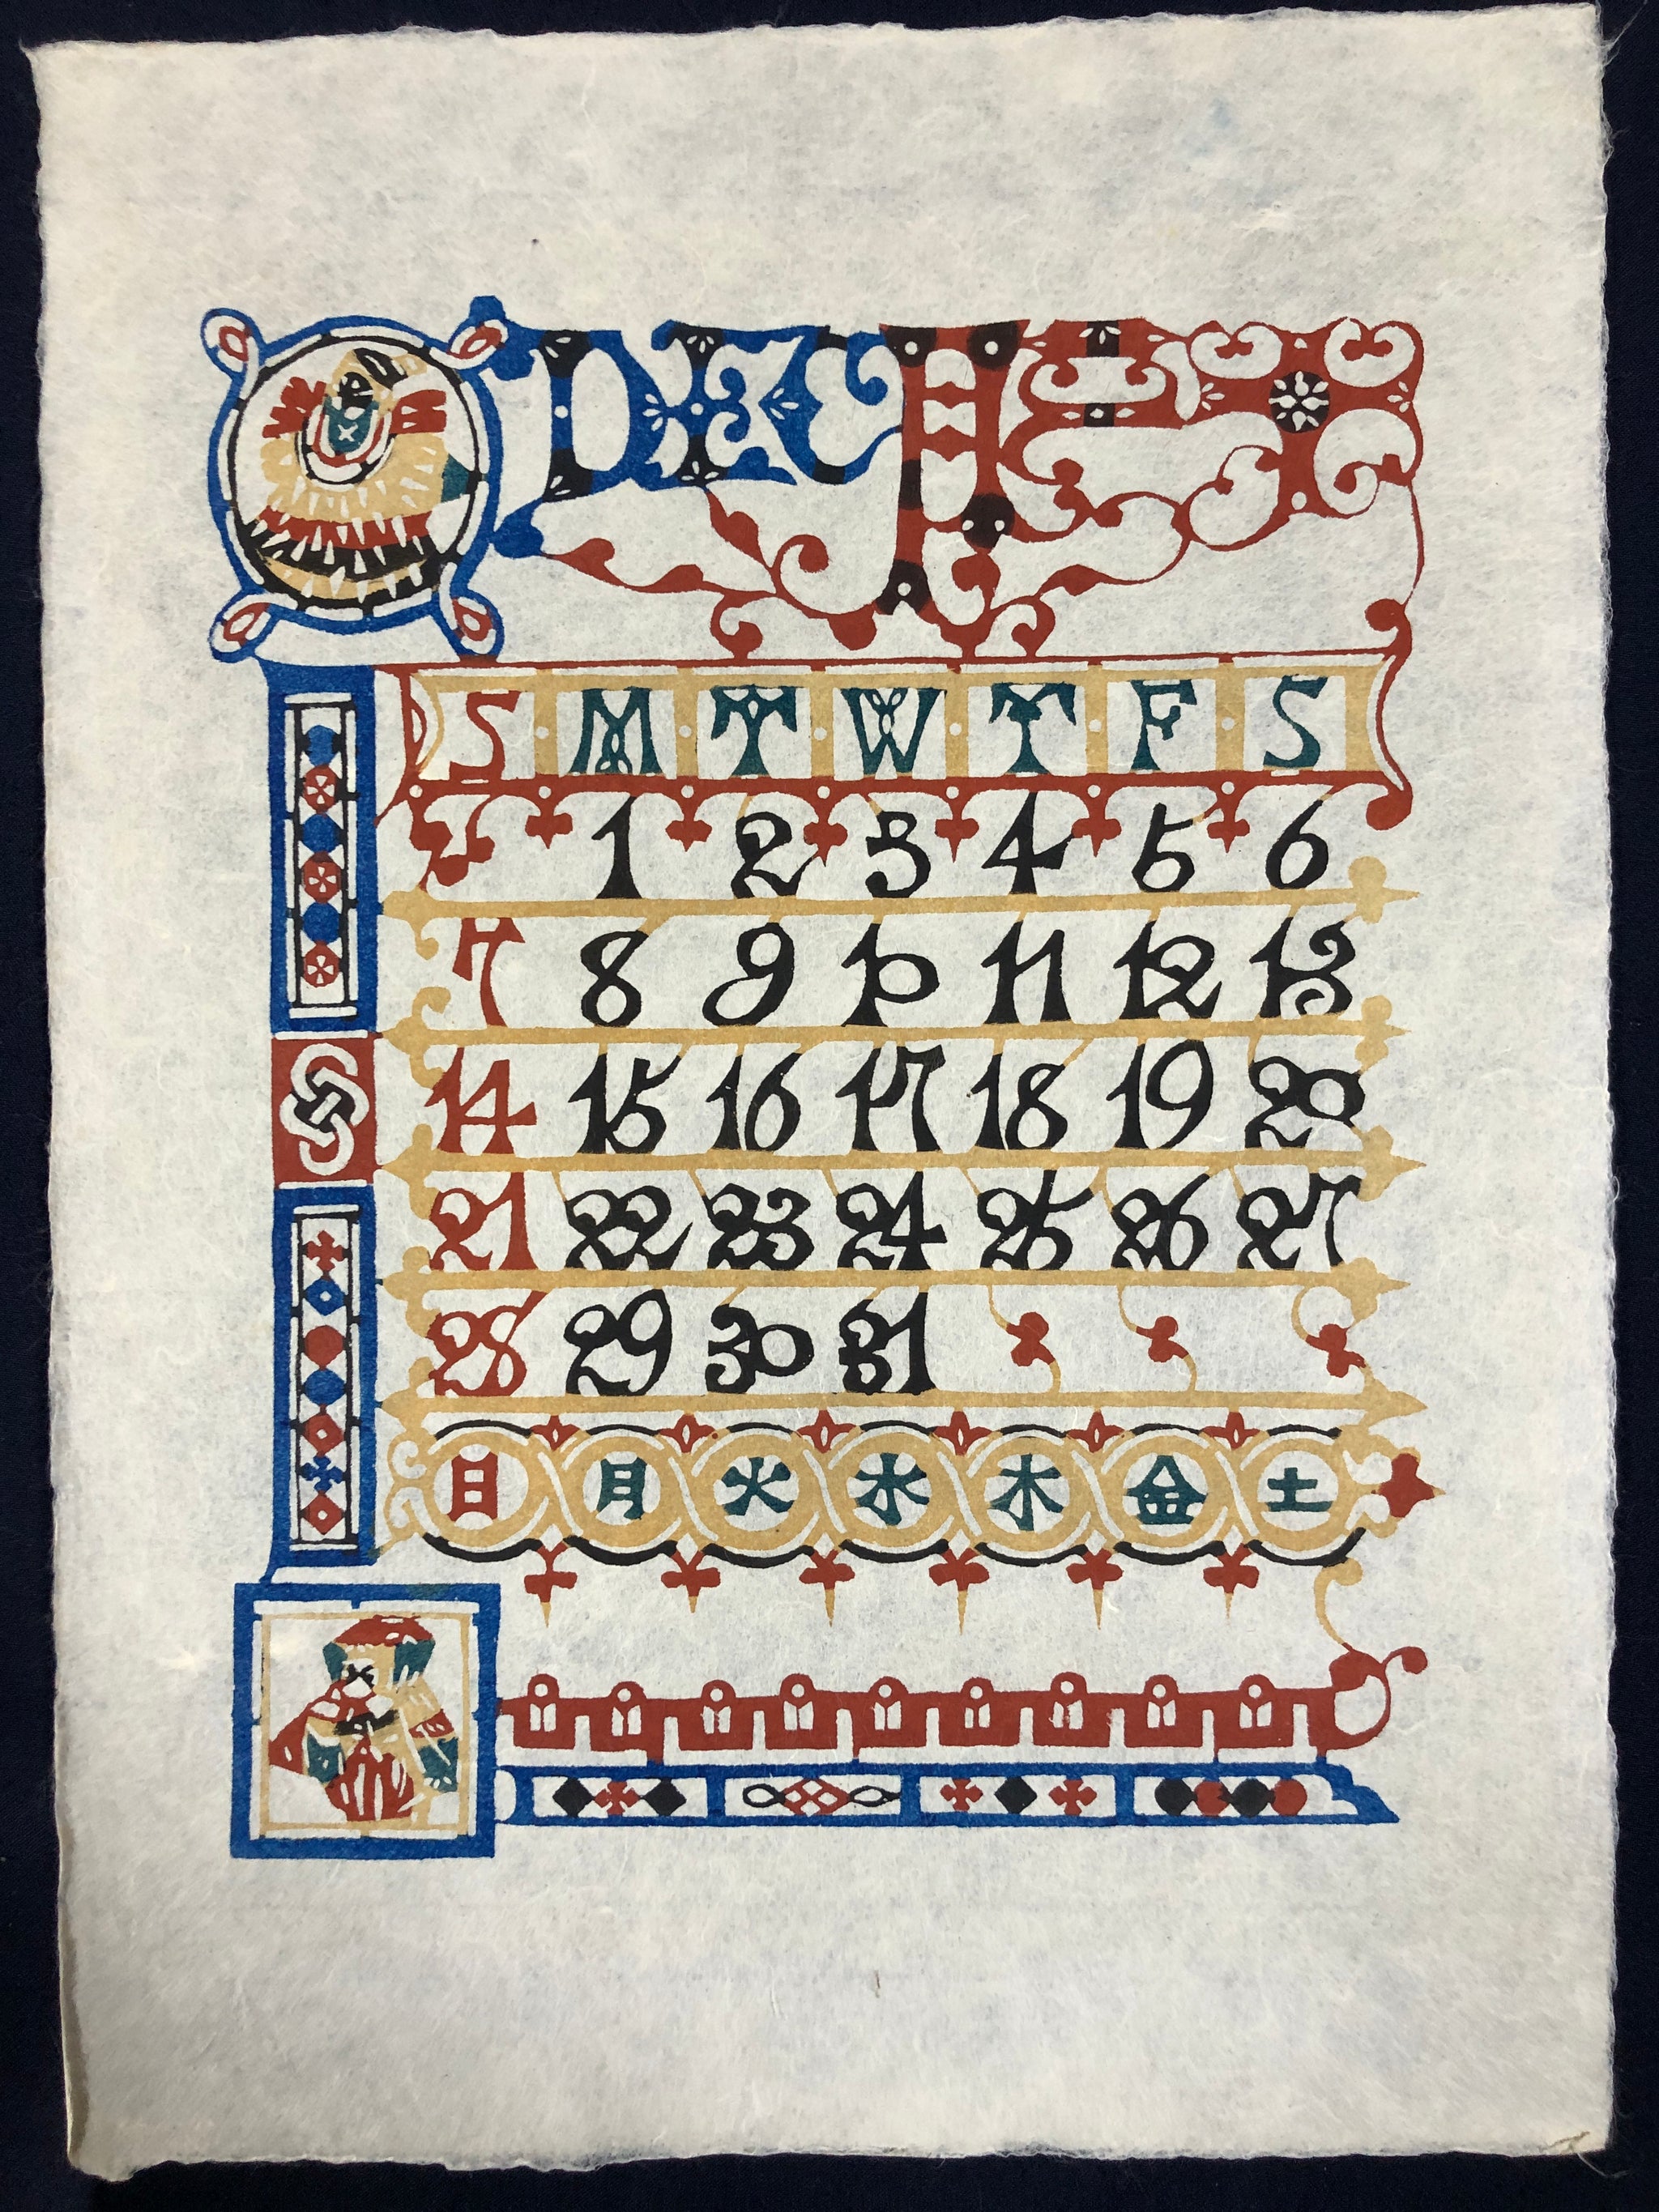 DEC 十二月
S M T W T F S
1 2 3 4 5 6
7 8 9 10 11 12 13
14 15 16 17 18 19 20
21 22 23 24 25 26 27
28 29 30 31
日 月 火 水 木 金 土